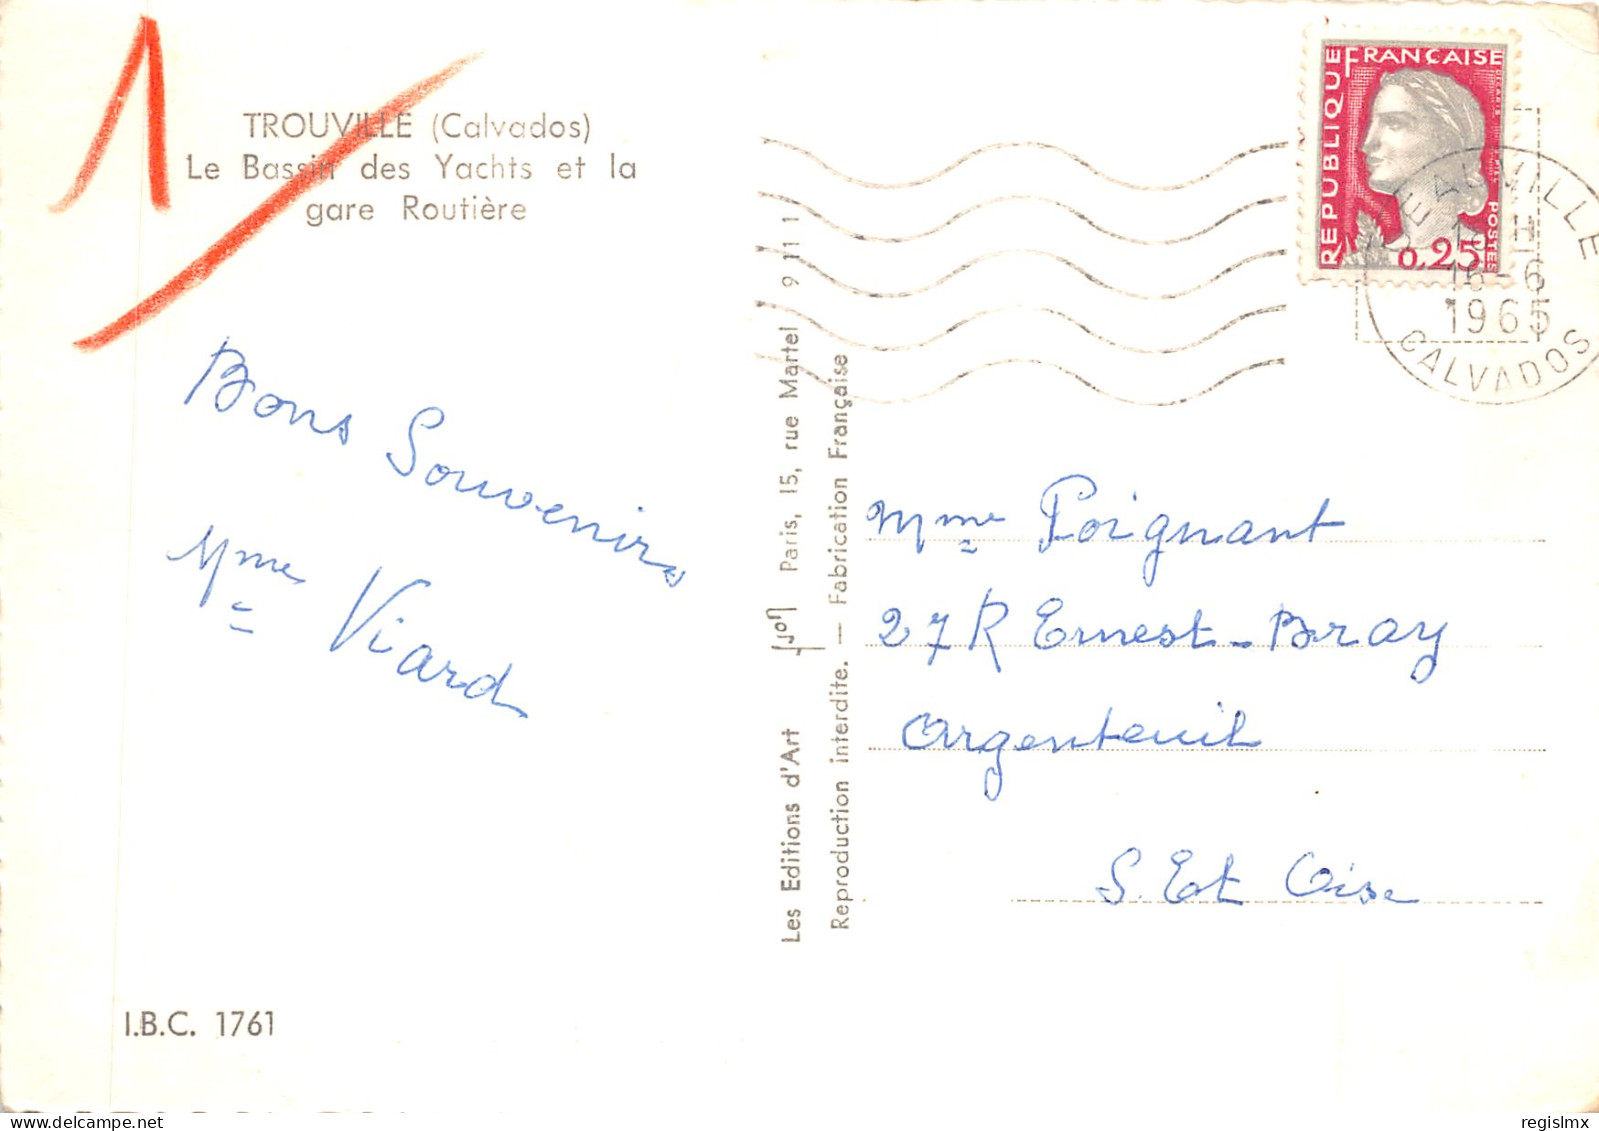 1
TROUVILLE (Calvados)
Le Bassin des Yachts et la
gare Routière
Bons Souvenirs
Mme Viard
I.B.C. 1761
Les Editions d'Art Yvon Paris, 15, rue Martel 9 11 1
Reproduction interdite. — Fabrication Française
RÉPUBLIQUE FRANÇAISE
POSTES
0,25
DEAUVILLE
16 H
16-6
1965
CALVADOS
Mme Poignant
27 R Ernest-Bray
Argenteuil
S. Et Oise
regislmx